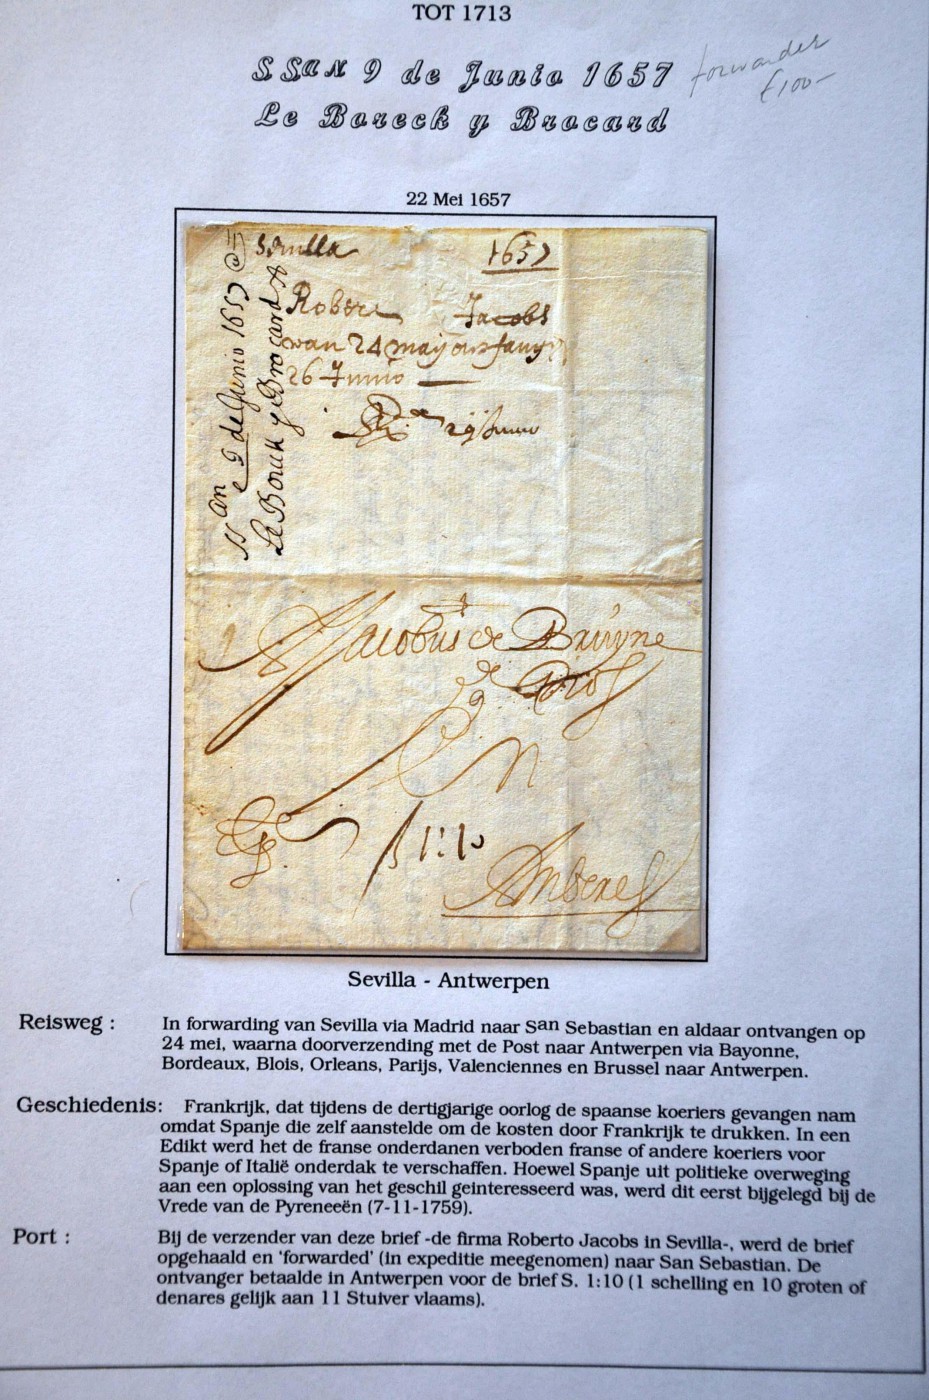 TOT 1713
SSan 9 de Junio 1657
Le Boreck y Brocard
forwarder
£100-
22 Mei 1657
Sevilla
1657
Robert Jacobs
van 24 maij
26 Junio
29 Junio
SSan
9 de Junio 1657
Le Boreck y Brocard
Jacobus de Bruyne
En
1:10
Amberes
Sevilla - Antwerpen
Reisweg : In forwarding van Sevilla via Madrid naar San Sebastian en aldaar ontvangen op
24 mei, waarna doorverzending met de Post naar Antwerpen via Bayonne,
Bordeaux, Blois, Orleans, Parijs, Valenciennes en Brussel naar Antwerpen.
Geschiedenis: Frankrijk, dat tijdens de dertigjarige oorlog de spaanse koeriers gevangen nam
omdat Spanje die zelf aanstelde om de kosten door Frankrijk te drukken. In een
Edikt werd het de franse onderdanen verboden franse of andere koeriers voor
Spanje of Italië onderdak te verschaffen. Hoewel Spanje uit politieke overweging
aan een oplossing van het geschil geinteresseerd was, werd dit eerst bijgelegd bij de
Vrede van de Pyreneeën (7-11-1759).
Port : Bij de verzender van deze brief -de firma Roberto Jacobs in Sevilla-, werd de brief
opgehaald en 'forwarded' (in expeditie meegenomen) naar San Sebastian. De
ontvanger betaalde in Antwerpen voor de brief S. 1:10 (1 schelling en 10 groten of
denares gelijk aan 11 Stuiver vlaams).